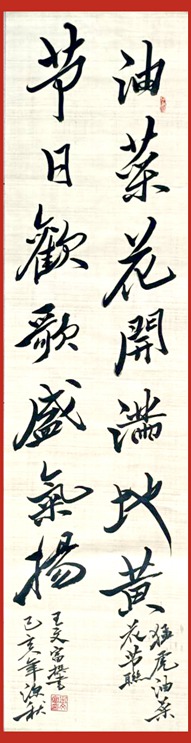 油菜花開滿地黃
猛尾油菜
花节联
节日歡歌盛氣揚
王文富撰书
己亥年深秋